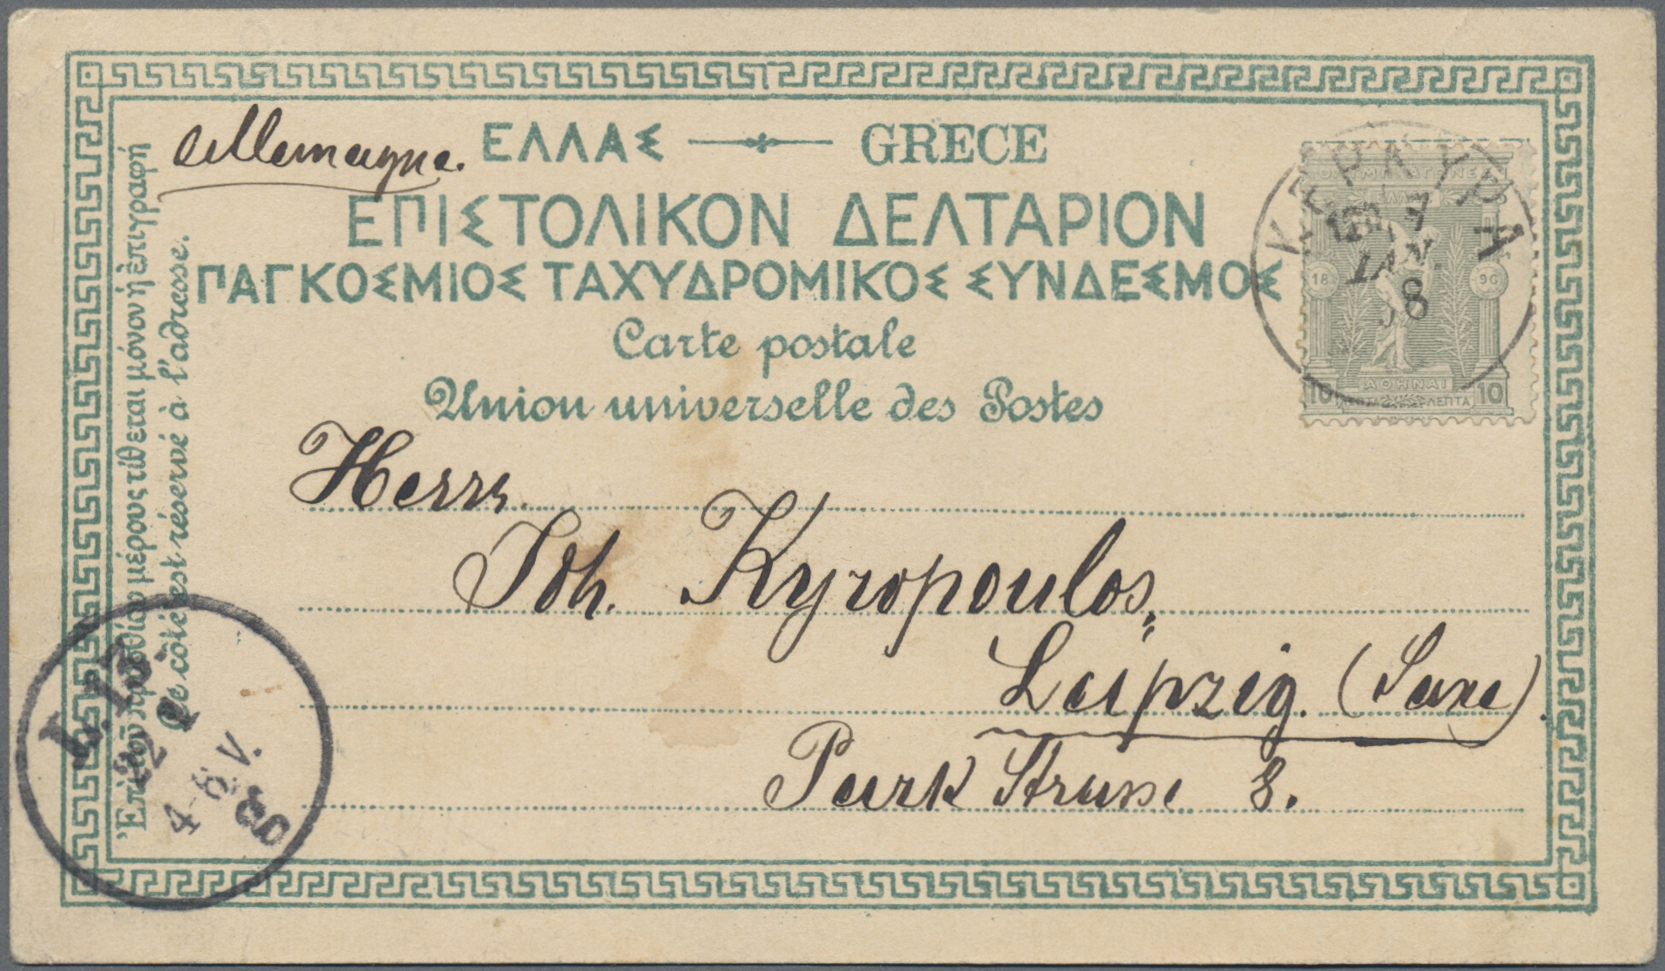 Allemagne.
ΕΛΛΑΣ GRECE
ΕΠΙΣΤΟΛΙΚΟΝ ΔΕΛΤΑΡΙΟΝ
ΠΑΓΚΟΣΜΙΟΣ ΤΑΧΥΔΡΟΜΙΚΟΣ ΣΥΝΔΕΣΜΟΣ
Carte postale
Union universelle des Postes
Ἐπὶ τοῦ ἐμπροσθίου μέρους τίθεται μόνον ἡ ἐπιγραφή
Ce côté est réservé à l'adresse.
ΚΕΡΚΥΡΑ
7
ΙΑΝ.
98
18 96
ΑΘΗΝΑΙ
10 10
Herrn
Joh. Kyropoulos,
Leipzig. (Saxe).
Park Strasse 8.
L. 13.
22 1
4-6 V.
98